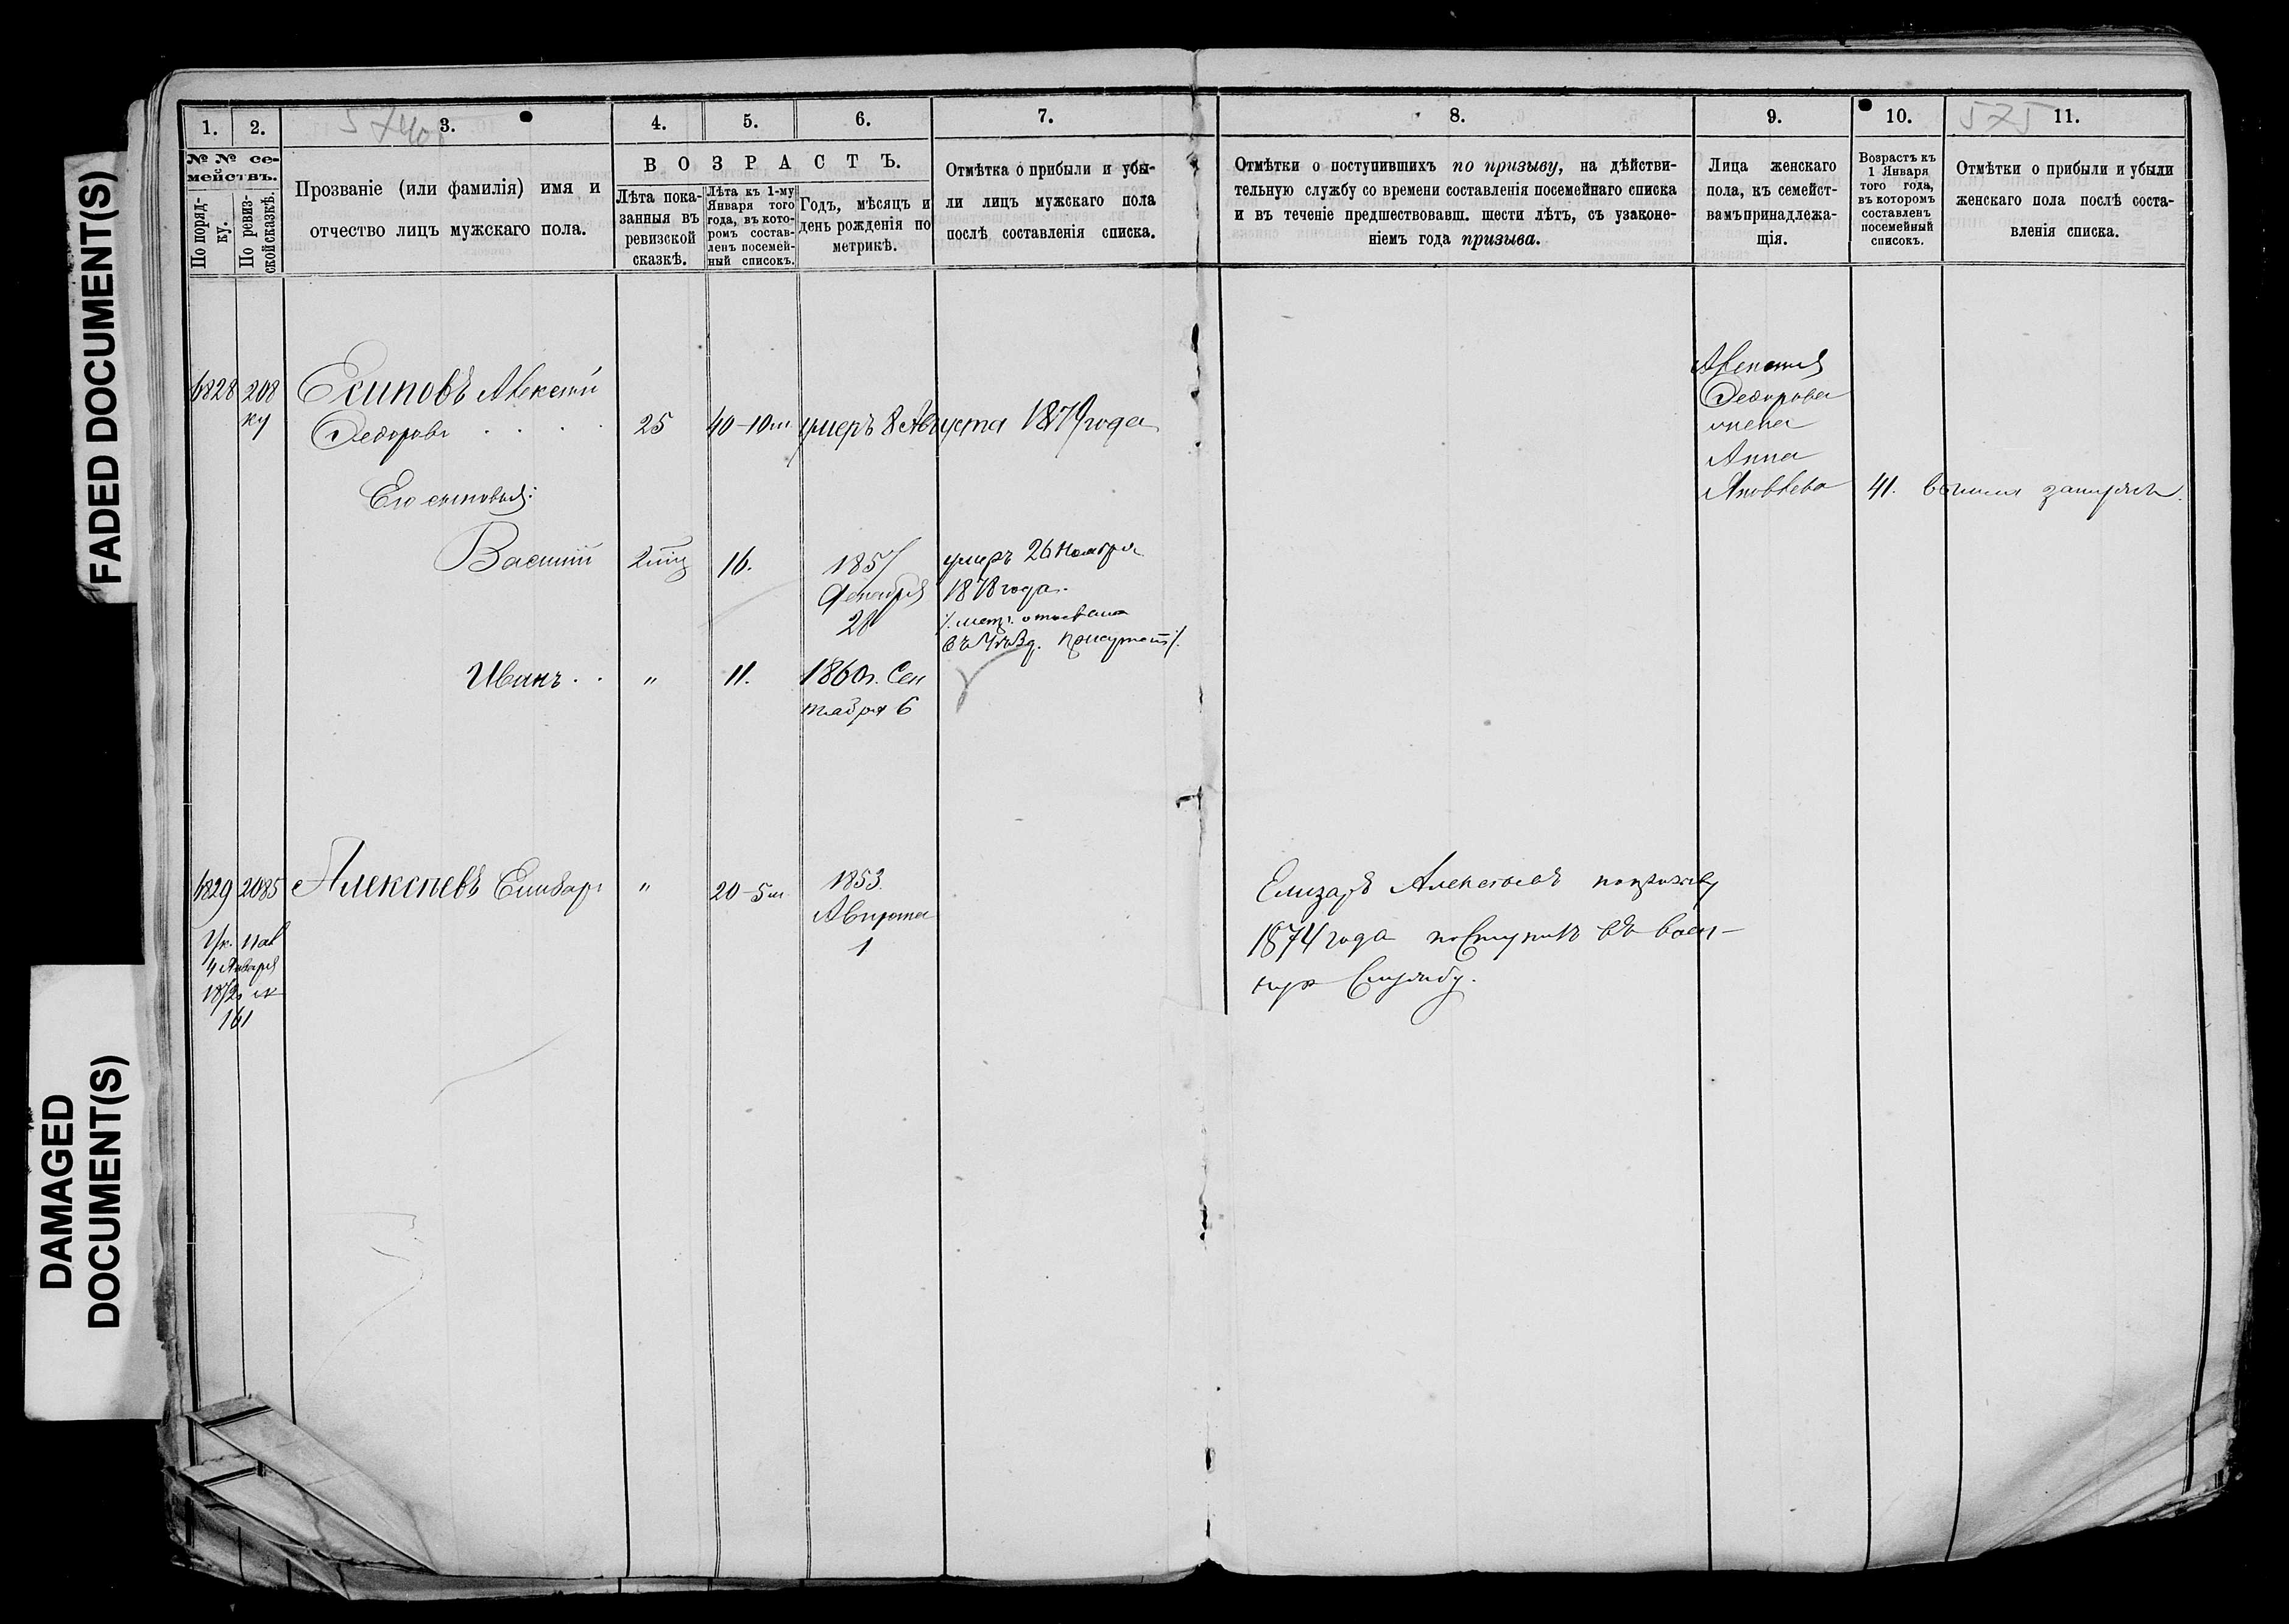 FADED DOCUMENT(S)
DAMAGED
DOCUMENT(S)
1.
2.
3.
4.
5.
6.
7.
8.
9.
10.
11.
575
№ № се-
мействъ.
По поряд-
ку.
По ревиз-
ской сказкѣ.
Прозваніе (или фамилія) имя и
отчество лицъ мужскаго пола.
ВОЗРАСТЪ.
Лѣта пока-
занныя въ
ревизской
сказкѣ.
Лѣта къ 1-му
Января того
года, въ кото-
ромъ состав-
ленъ посемей-
ный списокъ.
Годъ, мѣсяцъ и
день рожденія по
метрикѣ.
Отмѣтка о прибыли и убы-
ли лицъ мужскаго пола
послѣ составленія списка.
Отмѣтки о поступившихъ по призыву, на дѣйстви-
тельную службу со времени составленія посемейнаго списка
и въ теченіе предшествовавш. шести лѣтъ, съ узаконе-
ніемъ года призыва.
Лица женскаго
пола, къ семейст-
вамъ принадлежа-
щія.
Возрастъ къ
1 Января
того года,
въ которомъ
составленъ
посемейный
списокъ.
Отмѣтки о прибыли и убыли
женскаго пола послѣ соста-
вленія списка.
6828
208
Есиповъ Алексѣй
Федоровъ
25
40-10
умеръ 8 Августа 1879 года
Алексѣя
Федорова
жена
Анна
Яковлева
41.
вышла замужъ.
Его сыновья:
Василій
16.
1857
Декабря
умеръ 26 Ноября
1878 года.
Иванъ
"
11.
1860г. Сен
тября 6
6829
2085
Алексѣевъ Елизаръ
"
20-5
1853.
Августа
1
4 Января
161
Елизаръ Алексѣевъ по призыву
1874 года поступилъ въ воен-
ную службу.